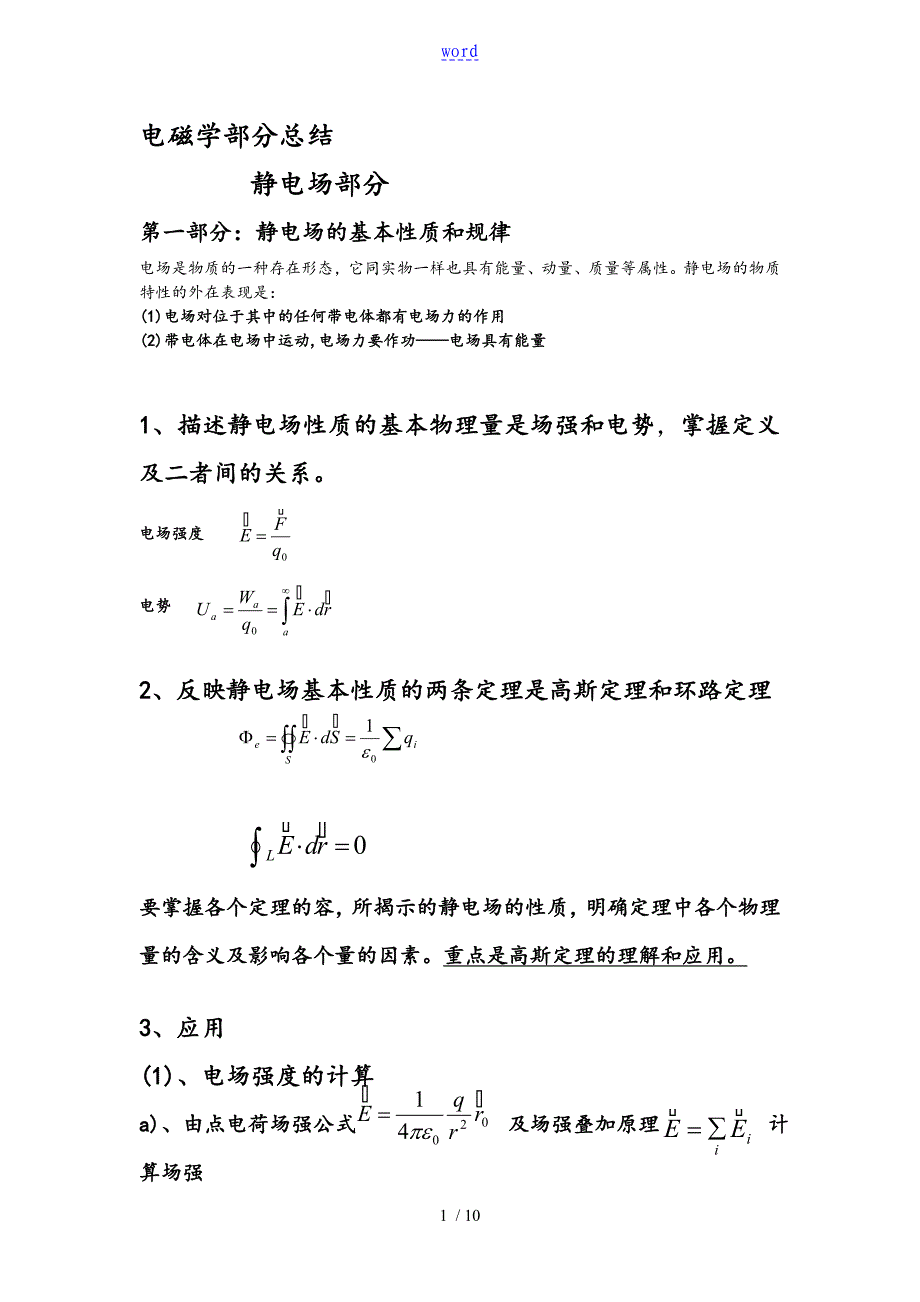 word
电磁学部分总结
静电场部分
第一部分：静电场的基本性质和规律
电场是物质的一种存在形态，它同实物一样也具有能量、动量、质量等属性。静电场的物质
特性的外在表现是：
(1)电场对位于其中的任何带电体都有电场力的作用
(2)带电体在电场中运动,电场力要作功——电场具有能量
1、描述静电场性质的基本物理量是场强和电势，掌握定义
及二者间的关系。
电场强度 $\vec{E}=\frac{\vec{F}}{q_0}$
电势 $U_a=\frac{W_a}{q_0}=\int_a^{\infty}\vec{E}\cdot d\vec{r}$
2、反映静电场基本性质的两条定理是高斯定理和环路定理
$\Phi_e=\oiint_S\vec{E}\cdot d\vec{S}=\frac{1}{\varepsilon_0}\sum q_i$
$\oint_L\vec{E}\cdot d\vec{r}=0$
要掌握各个定理的容，所揭示的静电场的性质，明确定理中各个物理
量的含义及影响各个量的因素。重点是高斯定理的理解和应用。
3、应用
(1)、电场强度的计算
a)、由点电荷场强公式 $\vec{E}=\frac{1}{4\pi\varepsilon_0}\frac{q}{r^2}\vec{r}_0$ 及场强叠加原理 $\vec{E}=\sum_i\vec{E}_i$ 计
算场强
1 / 10